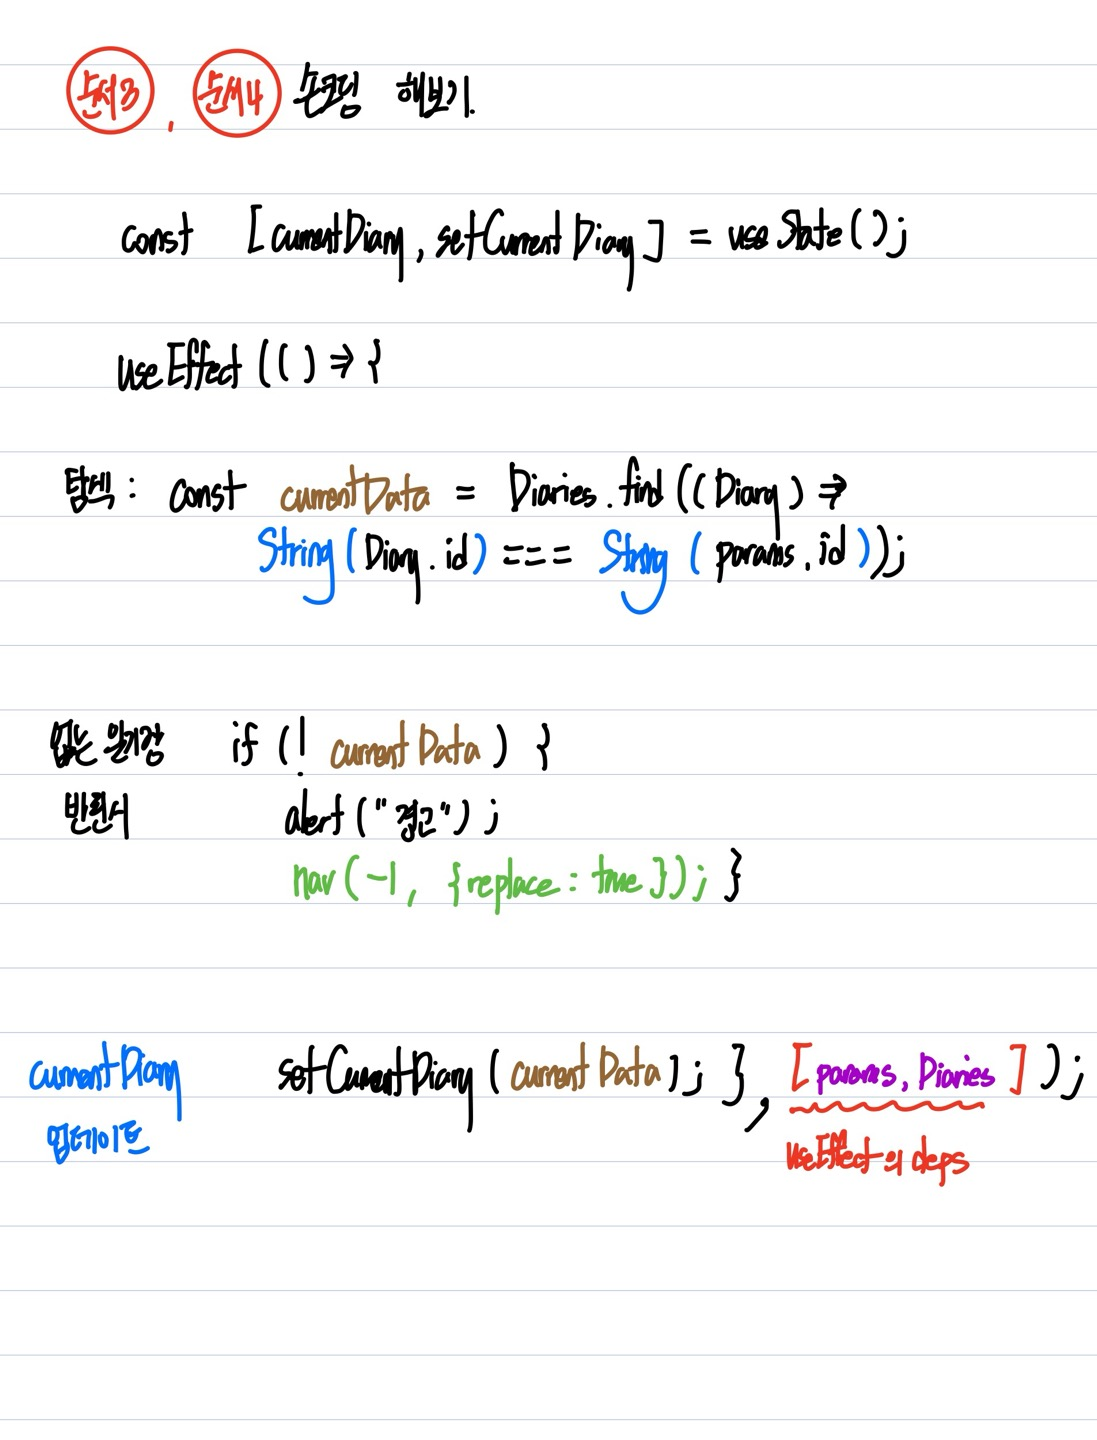 순서3 , 순서4 손코딩 해보기.
const [currentDiary, setCurrentDiary] = useState();
useEffect(() => {
탐색 : const currentData = Diaries.find((Diary) =>
String(Diary.id) === String(params.id));
없는 일기장 if (! currentData) {
반환시 alert("경고");
nav(-1, {replace: true}); }
currentDiary setCurrentDiary(currentData); }, [params, Diaries]);
업데이트 useEffect의 deps